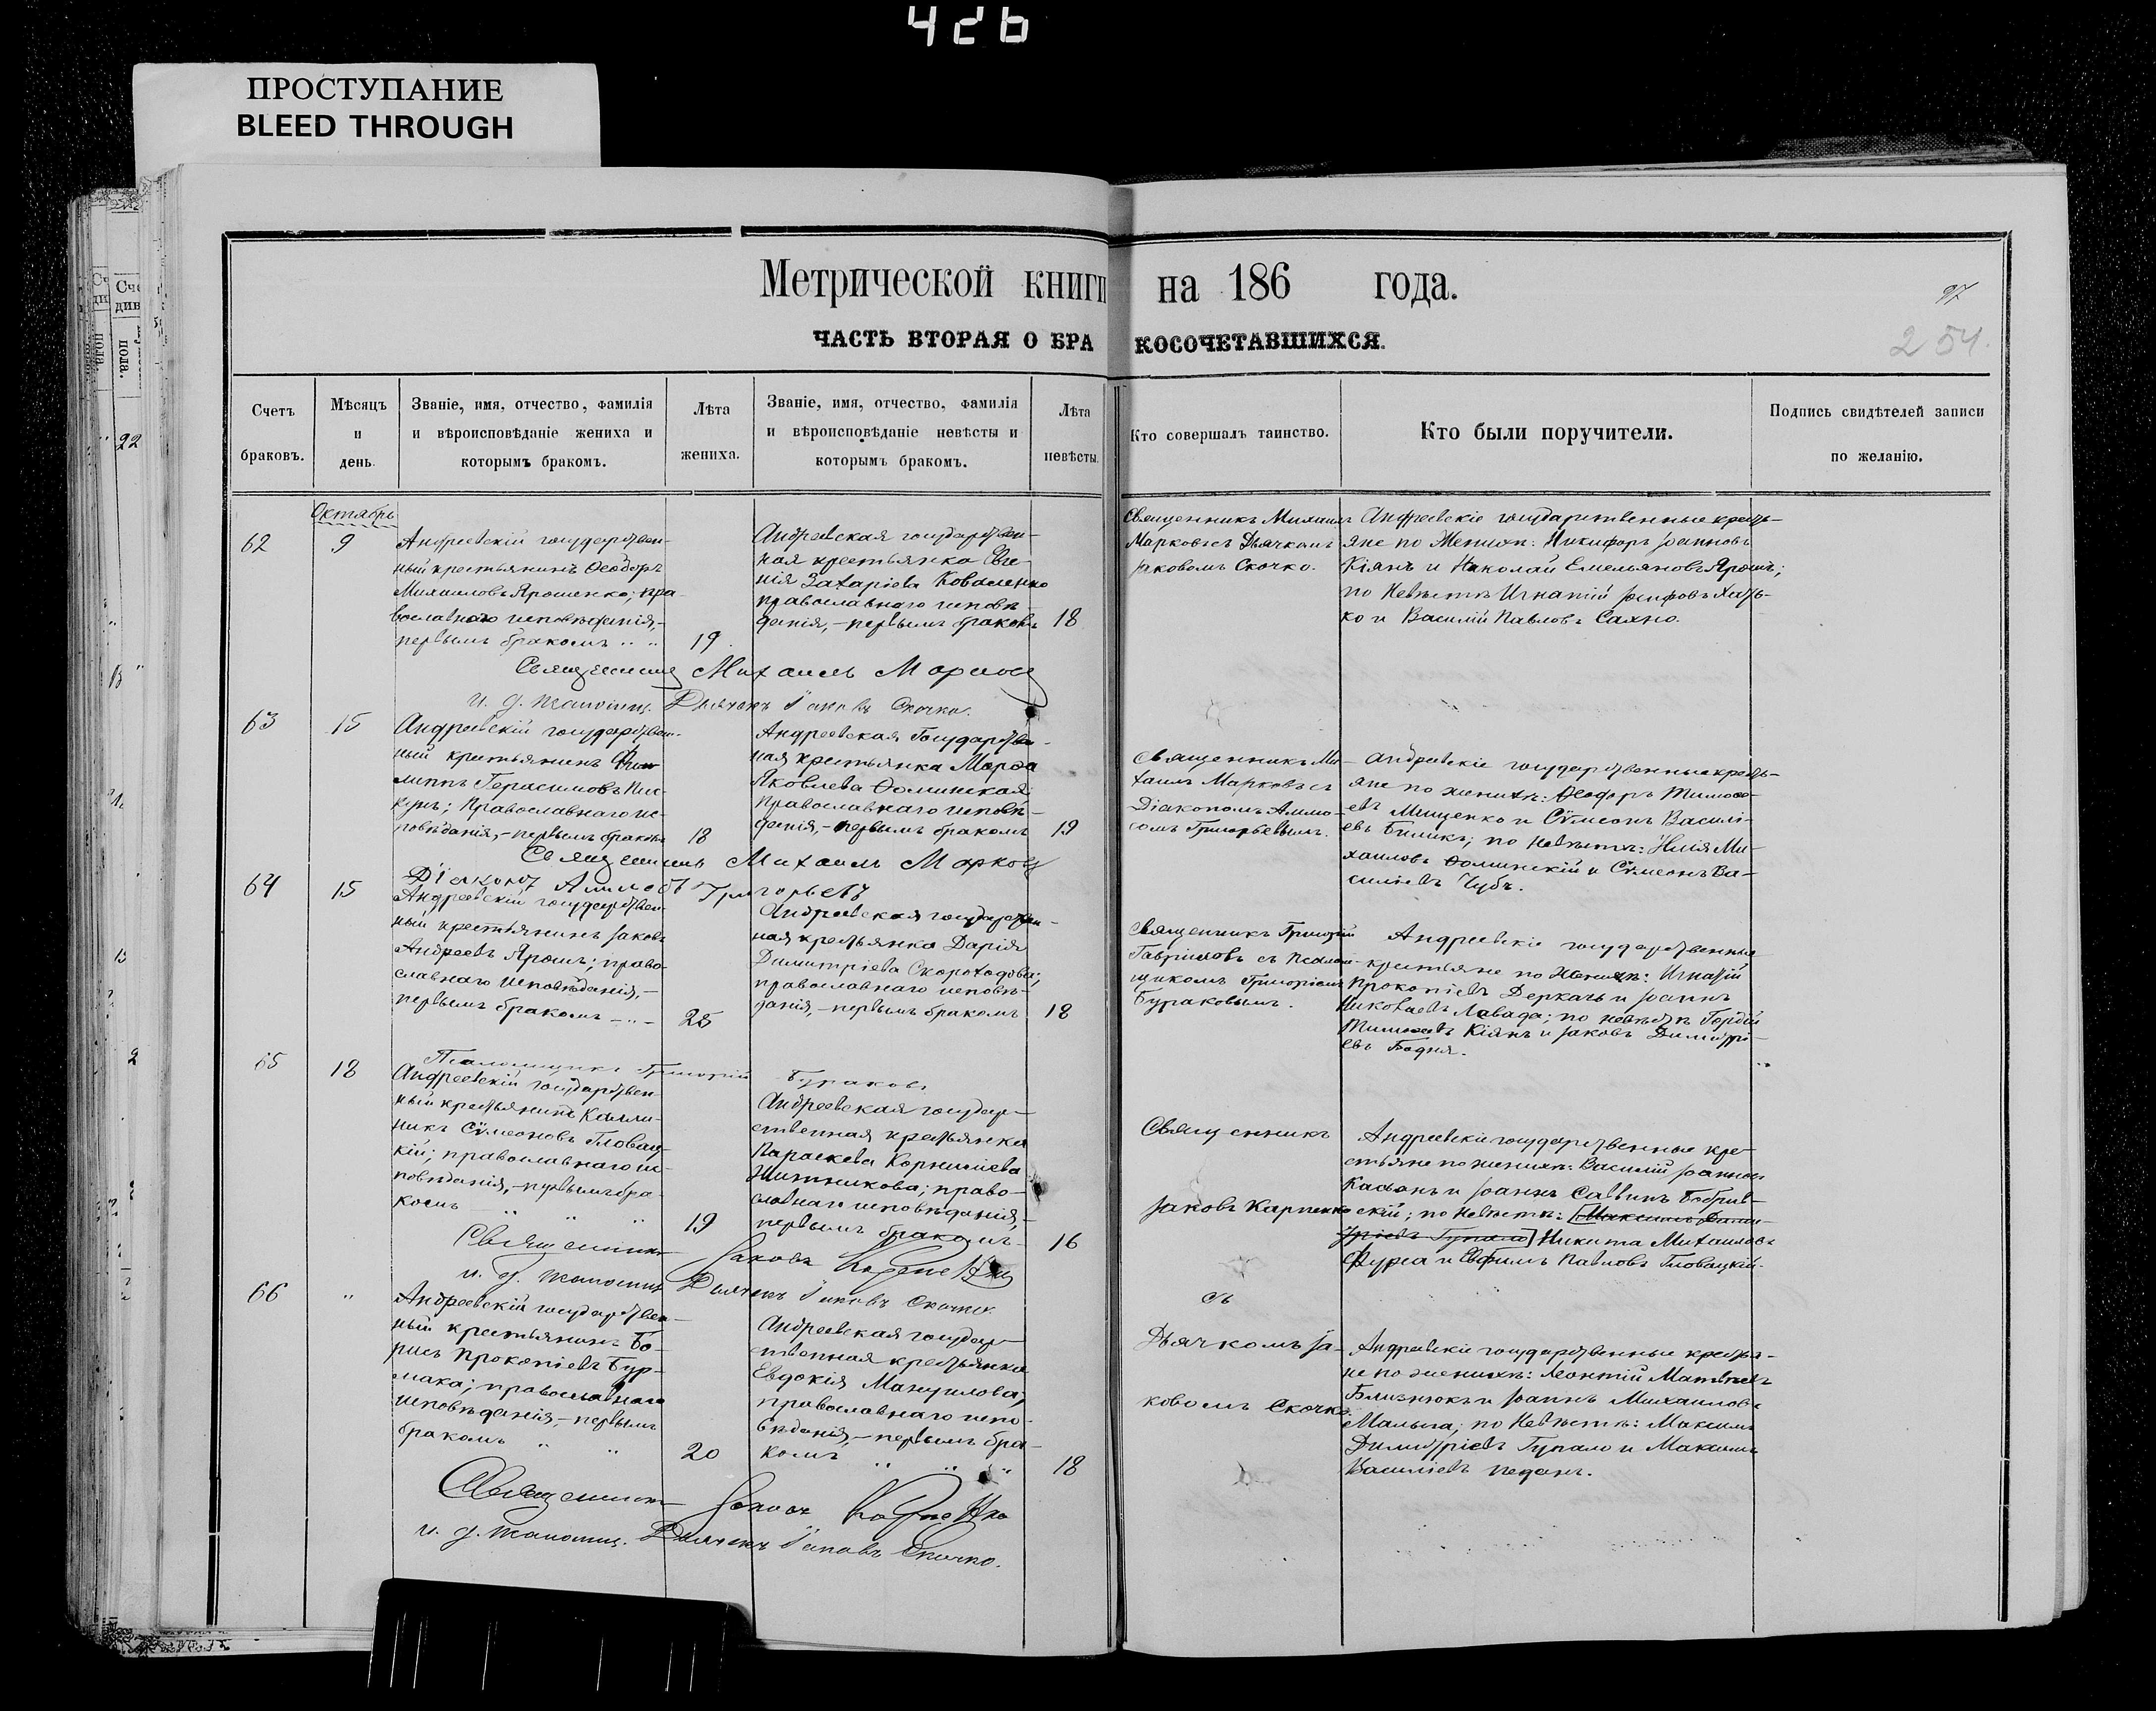 426
ПРОСТУПАНИЕ
BLEED THROUGH
Метрической книги на 186 года.
97
ЧАСТЬ ВТОРАЯ О БРАКОСОЧЕТАВШИХСЯ.
254.
Счетъ браковъ.
Мѣсяцъ и день.
Званіе, имя, отчество, фамилія
и вѣроисповѣданіе жениха и
которымъ бракомъ.
Лѣта жениха.
Званіе, имя, отчество, фамилія
и вѣроисповѣданіе невѣсты и
которымъ бракомъ.
Лѣта невѣсты.
Кто совершалъ таинство.
Кто были поручители.
Подпись свидѣтелей записи
по желанію.
Октябрь
62
9
Андреевскій государствен-
ный крестьянинъ Ѳеодоръ
Михаиловъ Ярошенко; пра-
вославнаго исповѣданія,-
первымъ бракомъ
19.
Андреевская государствен-
ная крестьянка Евге-
нія Захаріева Коваленко
православнаго исповѣ-
данія,- первымъ бракомъ
18
Священникъ Михаилъ
Марковъ съ Дьячкомъ
Іаковомъ Скочко.
Андреевскіе государственные кресть-
яне по Женихѣ: Никифоръ Іоанновъ
Кіянъ и Николай Емельяновъ Ярошъ;
по Невѣстѣ Игнатій Іосифовъ
ко и Василій Павловъ Сахно.
Священникъ Михаилъ Марковъ
и. д. псаломщ. Дьячекъ Іаковъ Скочко.
63
15
Андреевскій государствен-
ный крестьянинъ Фи-
липпъ Герасимовъ Пис-
кунъ; Православнаго ис-
повѣданія,- первымъ бракомъ
18
Андреевская Государствен-
ная крестьянка Марѳа
Яковлева Ѳоминская
православнаго исповѣ-
данія,- первымъ бракомъ
19
Священникъ Ми-
хаилъ Марковъ съ
Діакономъ Аммо-
сомъ Григорьевымъ.
Андреевскіе государственные кресть-
яне по женихѣ: Ѳеодоръ Тимоѳе-
евъ Мищенко и Сѵмеонъ Василі-
евъ Биликъ; по невѣстѣ: Илія Ми-
хаиловъ Ѳоминскій и Сѵмеонъ Ва-
силіевъ Чубъ.
Священникъ Михаилъ Марковъ
Діаконъ Аммосъ Григорьевъ
64
15
Андреевскій государствен-
ный крестьянинъ Іаковъ
Андреевъ Ярошъ; право-
славнаго исповѣданія,-
первымъ бракомъ
25
Андреевская государствен-
ная крестьянка Дарія
Димитріева Скороходова;
православнаго исповѣ-
данія,- первымъ бракомъ
18
Священникъ Григорій
Гавриловъ съ Псалом-
щикомъ Григоріемъ
Бураковымъ.
Андреевскіе государственные
крестьяне по Женихѣ: Игнатій
Прокопіевъ Деркачъ и Іоаннъ
Николаевъ Лавада; по невѣстѣ Гордій
Тимоѳеевъ Кіянъ и Іаковъ Димитрі-
евъ Бодня.
Псаломщикъ Григорій Бураковъ.
65
18
Андреевскій государствен-
ный крестьянинъ Калли-
никъ Сѵмеоновъ Гловац-
кій; православнаго ис-
повѣданія,- первымъ бра-
комъ
19
Андреевская государ-
ственная крестьянка
Параскева Корниліева
Житникова; право-
славнаго исповѣданія,-
первымъ бракомъ
16
Священникъ
Іаковъ Карпенко
Андреевскіе государственные кре-
стьяне по женихѣ: Василій Іоанновъ
Касьянъ и Іоаннъ Саввинъ Бобрив-
скій; по невѣстѣ: [Максимъ Дими-
тріевъ Гупало] Никита Михаиловъ
Фурса и Евфимъ Павловъ Гловацкій.
Священникъ Іаковъ Карпенко
и. д. псаломщ. Дьячекъ Іаковъ Скочко.
съ
66
"
Андреевскій государствен-
ный крестьянинъ Бо-
рисъ Прокопіевъ Бур-
мака; православнаго
исповѣданія,- первымъ
бракомъ
20
Андреевская государ-
ственная крестьянка
Евдокія Мануилова;
православнаго испо-
вѣданія,- первымъ бра-
комъ
18
Дьячкомъ Іа-
ковомъ Скочко.
Андреевскіе государственные крестья-
не по женихѣ: Леонтій Матвѣевъ
Близнюкъ и Іоаннъ Михаиловъ
Малыга; по Невѣстѣ: Максимъ
Димитріевъ Гупало и Максимъ
Василіевъ Педанъ.
Священникъ Іаковъ Карпенко
и. д. псаломщ. Дьячекъ Іаковъ Скочко.